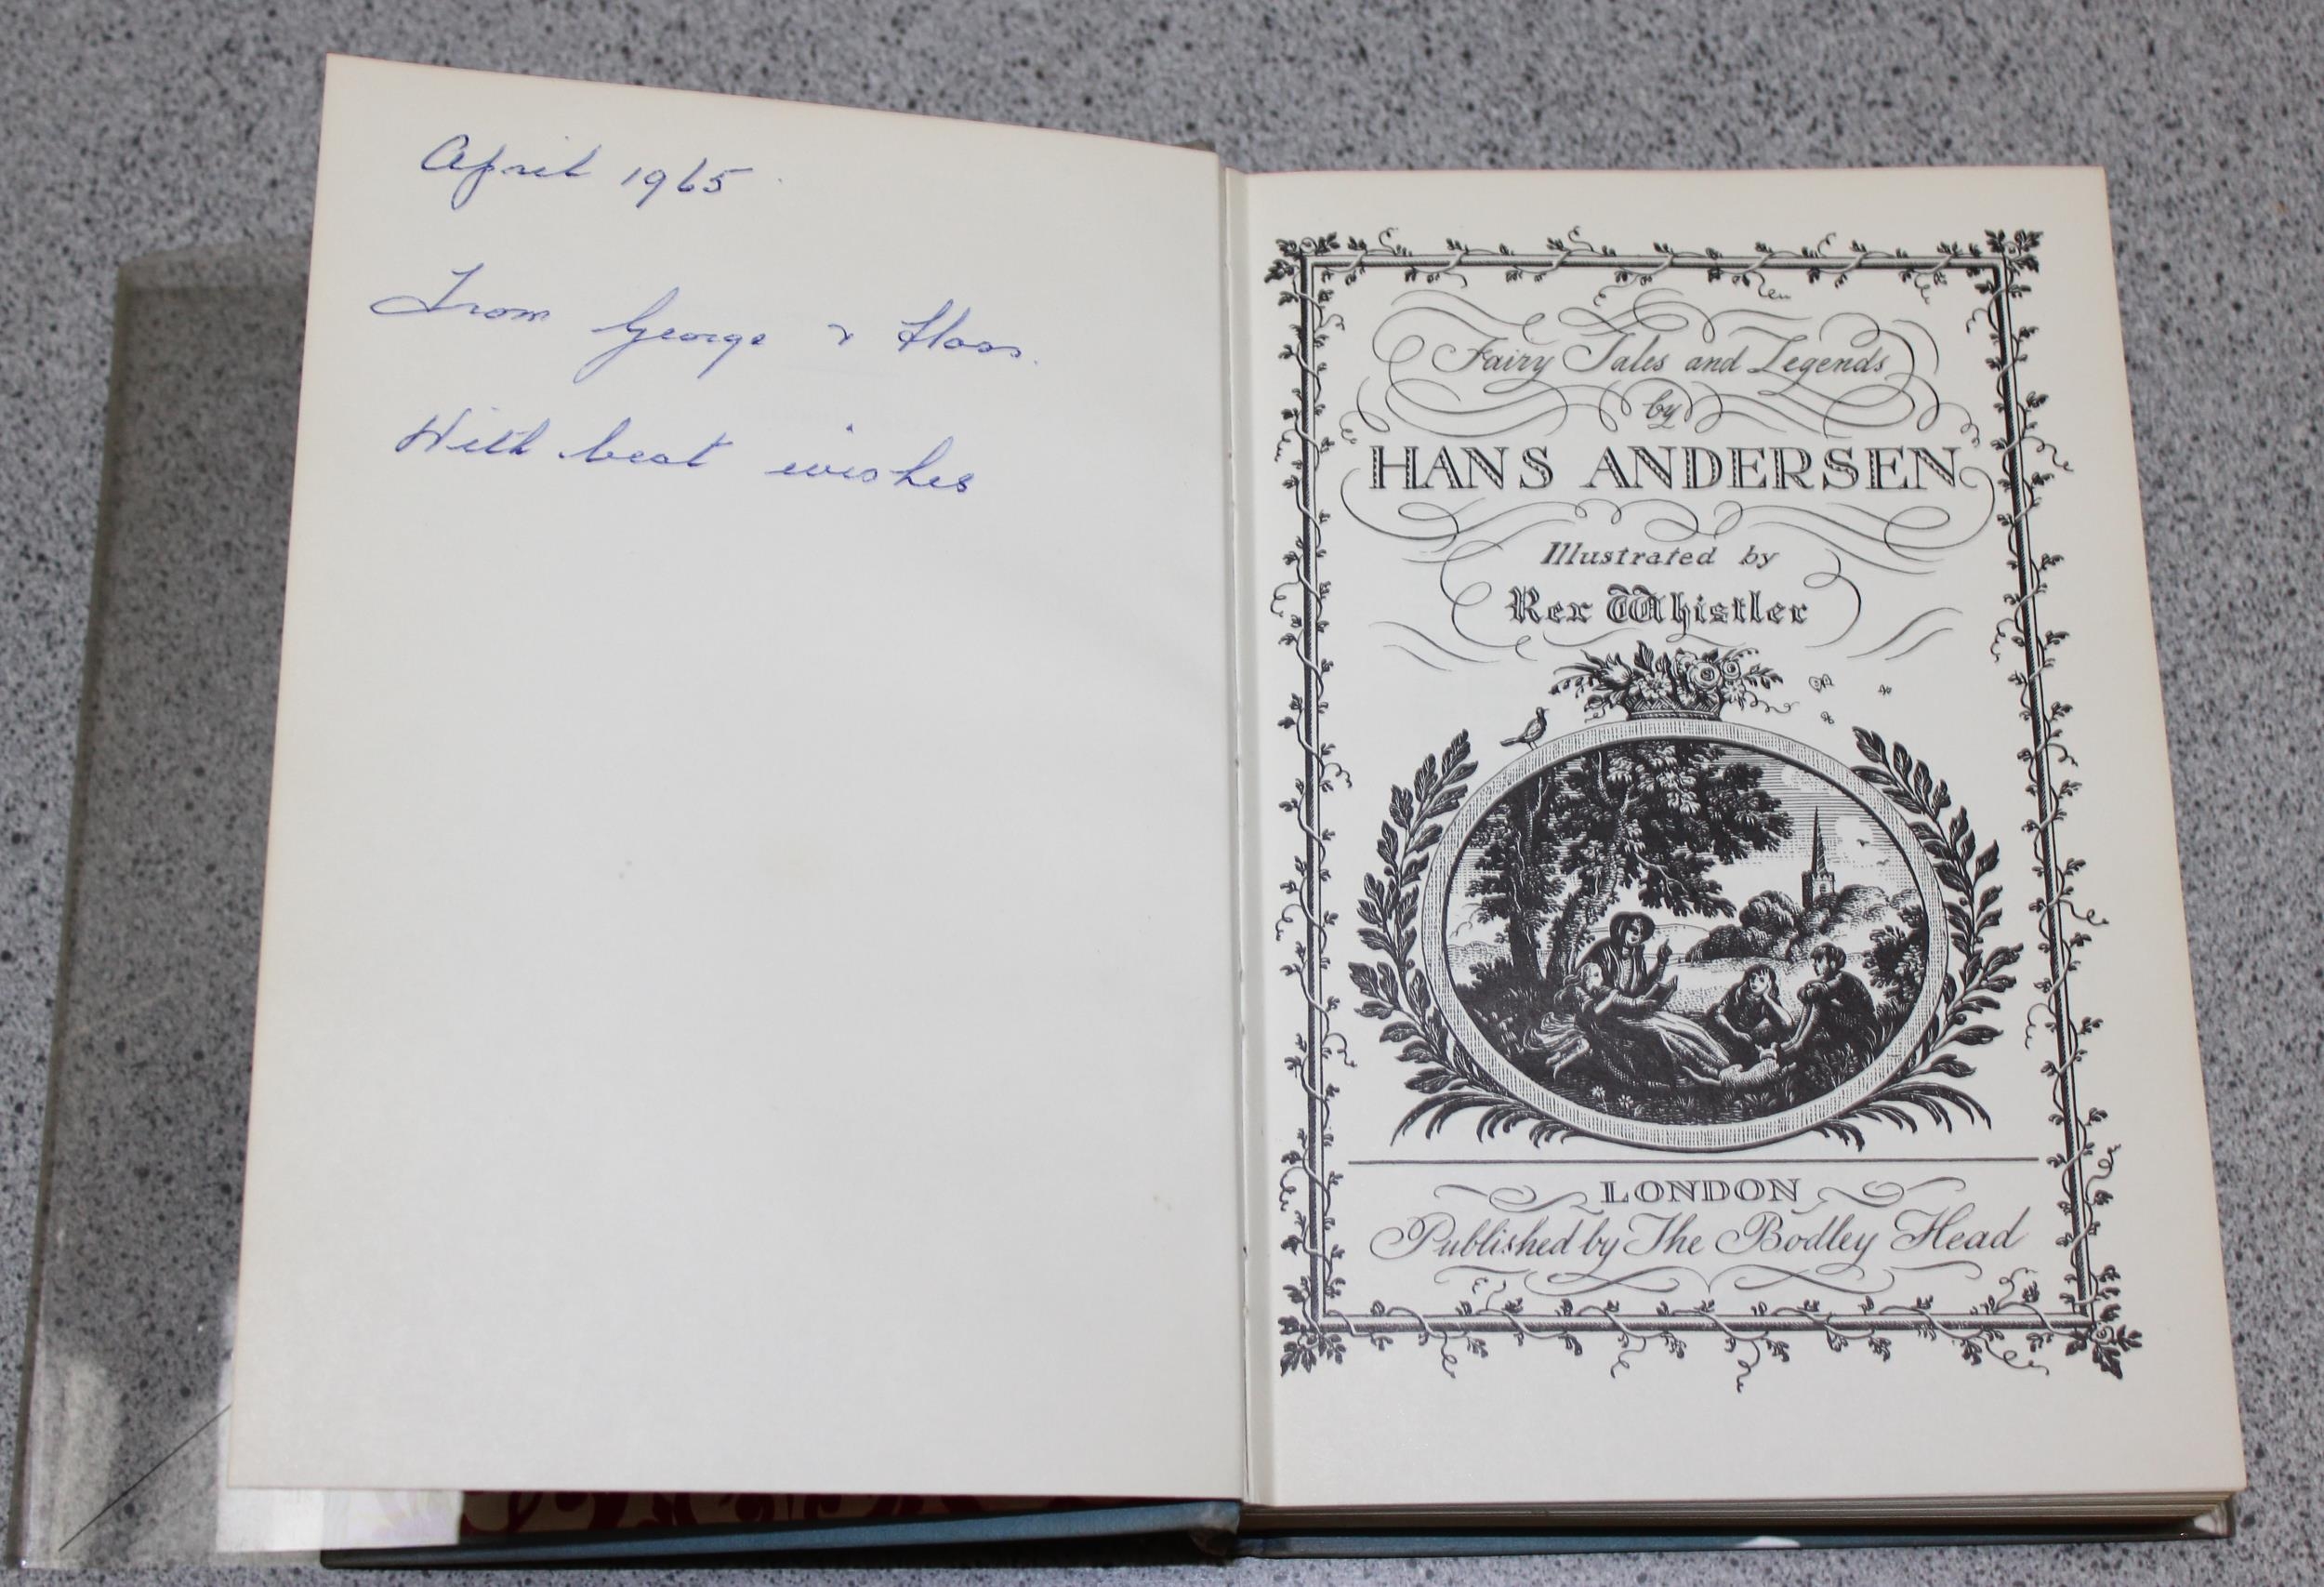 April 1965
From George & Floss.
With best wishes
Fairy Tales and Legends
by
HANS ANDERSEN
Illustrated by
Rex Whistler
LONDON
Published by The Bodley Head